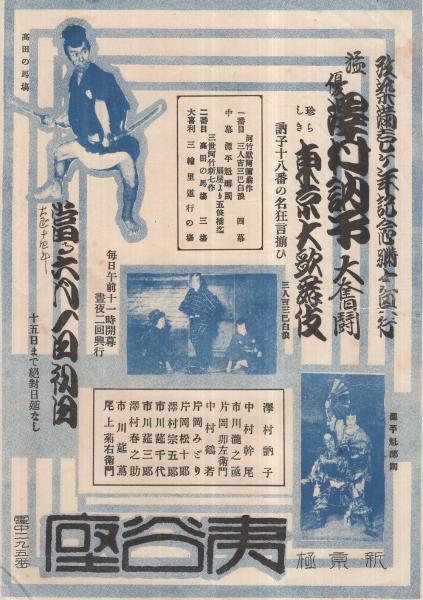 改築満壱ヶ年記念特別興行
猛優 澤村訥子 大奮鬪
珍らしき 東京大歌舞伎
訥子十八番の名狂言揃ひ
一番目 河竹默阿彌作 三人吉三巴白浪 四幕
中幕 源平魁躑躅
扇屋より五條橋迄
三世河竹新七作
二番目 高田の馬塲 三塲
大喜利 三輪里道行の塲
高田の馬塲
三人吉三巴白浪
源平魁躑躅
大正十四年
當る六月一日初日
十五日まで絕對日延なし
毎日午前十一時開幕
晝夜二回興行
澤村訥子
中村幹尾
市川瀧之丞
片岡卯左衛門
中村鶴若
片岡みどり
片岡松十郎
澤村宗五郎
市川莚千代
市川莚三郎
澤村春之助
市川莚蔦
尾上菊右衛門
新京極
夷谷座
電中二九五番